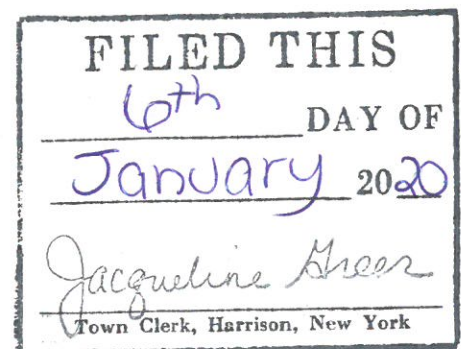 FILED THIS
6th
DAY OF
January 2020
Jacqueline Greer
Town Clerk, Harrison, New York